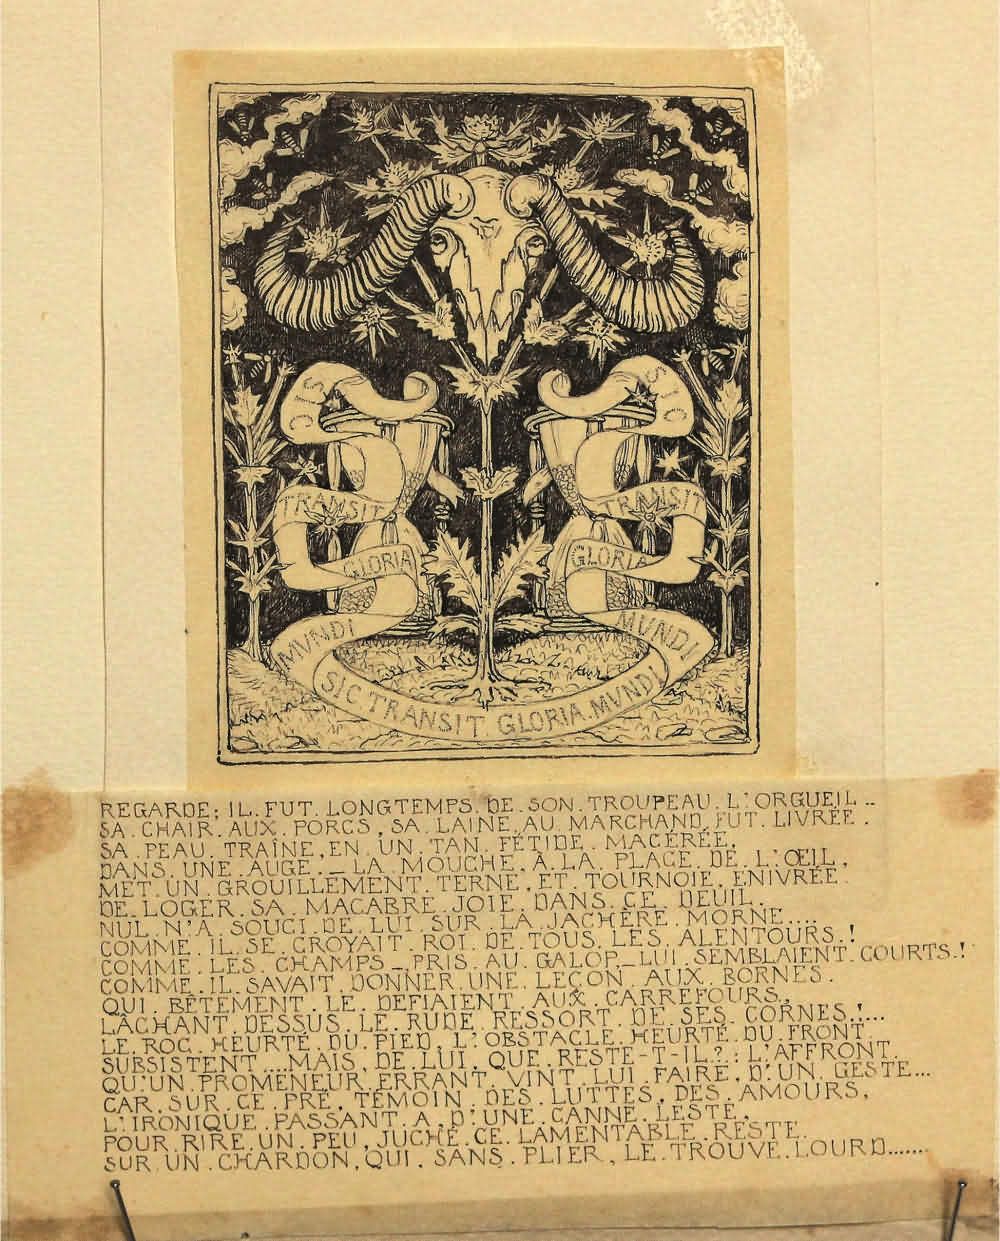 SIC
SIC
TRANSIT
TRANSIT
GLORIA
GLORIA
MVNDI
MVNDI
SIC.TRANSIT.GLORIA.MVNDI
REGARDE; IL.FUT.LONGTEMPS.DE.SON.TROUPEAU.L'ORGUEIL..
SA.CHAIR.AUX.PORCS, SA.LAINE.AU.MARCHAND.FUT.LIVRÉE.
SA.PEAU.TRAÎNE, EN.UN.TAN.FÉTIDE.MACÉRÉE,
DANS.UNE.AUGE._LA.MOUCHE, À.LA.PLACE.DE.L'ŒIL,
MET.UN.GROUILLEMENT.TERNE, ET.TOURNOIE, ENIVRÉE.
DE.LOGER.SA.MACABRE.JOIE.DANS.CE.DEUIL.
NUL.N'A.SOUCI.DE.LUI.SUR.LA.JACHÈRE.MORNE....
COMME.IL.SE.CROYAIT.ROI.DE.TOUS.LES.ALENTOURS.!
COMME.LES.CHAMPS_PRIS.AU.GALOP_LUI.SEMBLAIENT.COURTS.!
COMME.IL.SAVAIT.DONNER.UNE.LEÇON.AUX.BORNES.
QUI.BÊTEMENT.LE.DEFIAIENT.AUX.CARREFOURS,
LÂCHANT.DESSUS.LE.RUDE.RESSORT.DE.SES.CORNES.!...
LE.ROC.HEURTÉ.DU.PIED, L'OBSTACLE.HEURTÉ.DU.FRONT,
SUBSISTENT...MAIS.DE.LUI, QUE.RESTE-T-IL?: L'AFFRONT.
QU'UN.PROMENEUR.ERRANT.VINT.LUI.FAIRE, D'UN.GESTE...
CAR.SUR.CE.PRÉ, TÉMOIN.DES.LUTTES, DES.AMOURS,
L'IRONIQUE.PASSANT.A, D'UNE.CANNE.LESTE,
POUR.RIRE.UN.PEU, JUCHÉ.CE.LAMENTABLE.RESTE.
SUR.UN.CHARDON, QUI.SANS.PLIER, LE.TROUVE.LOURD.......